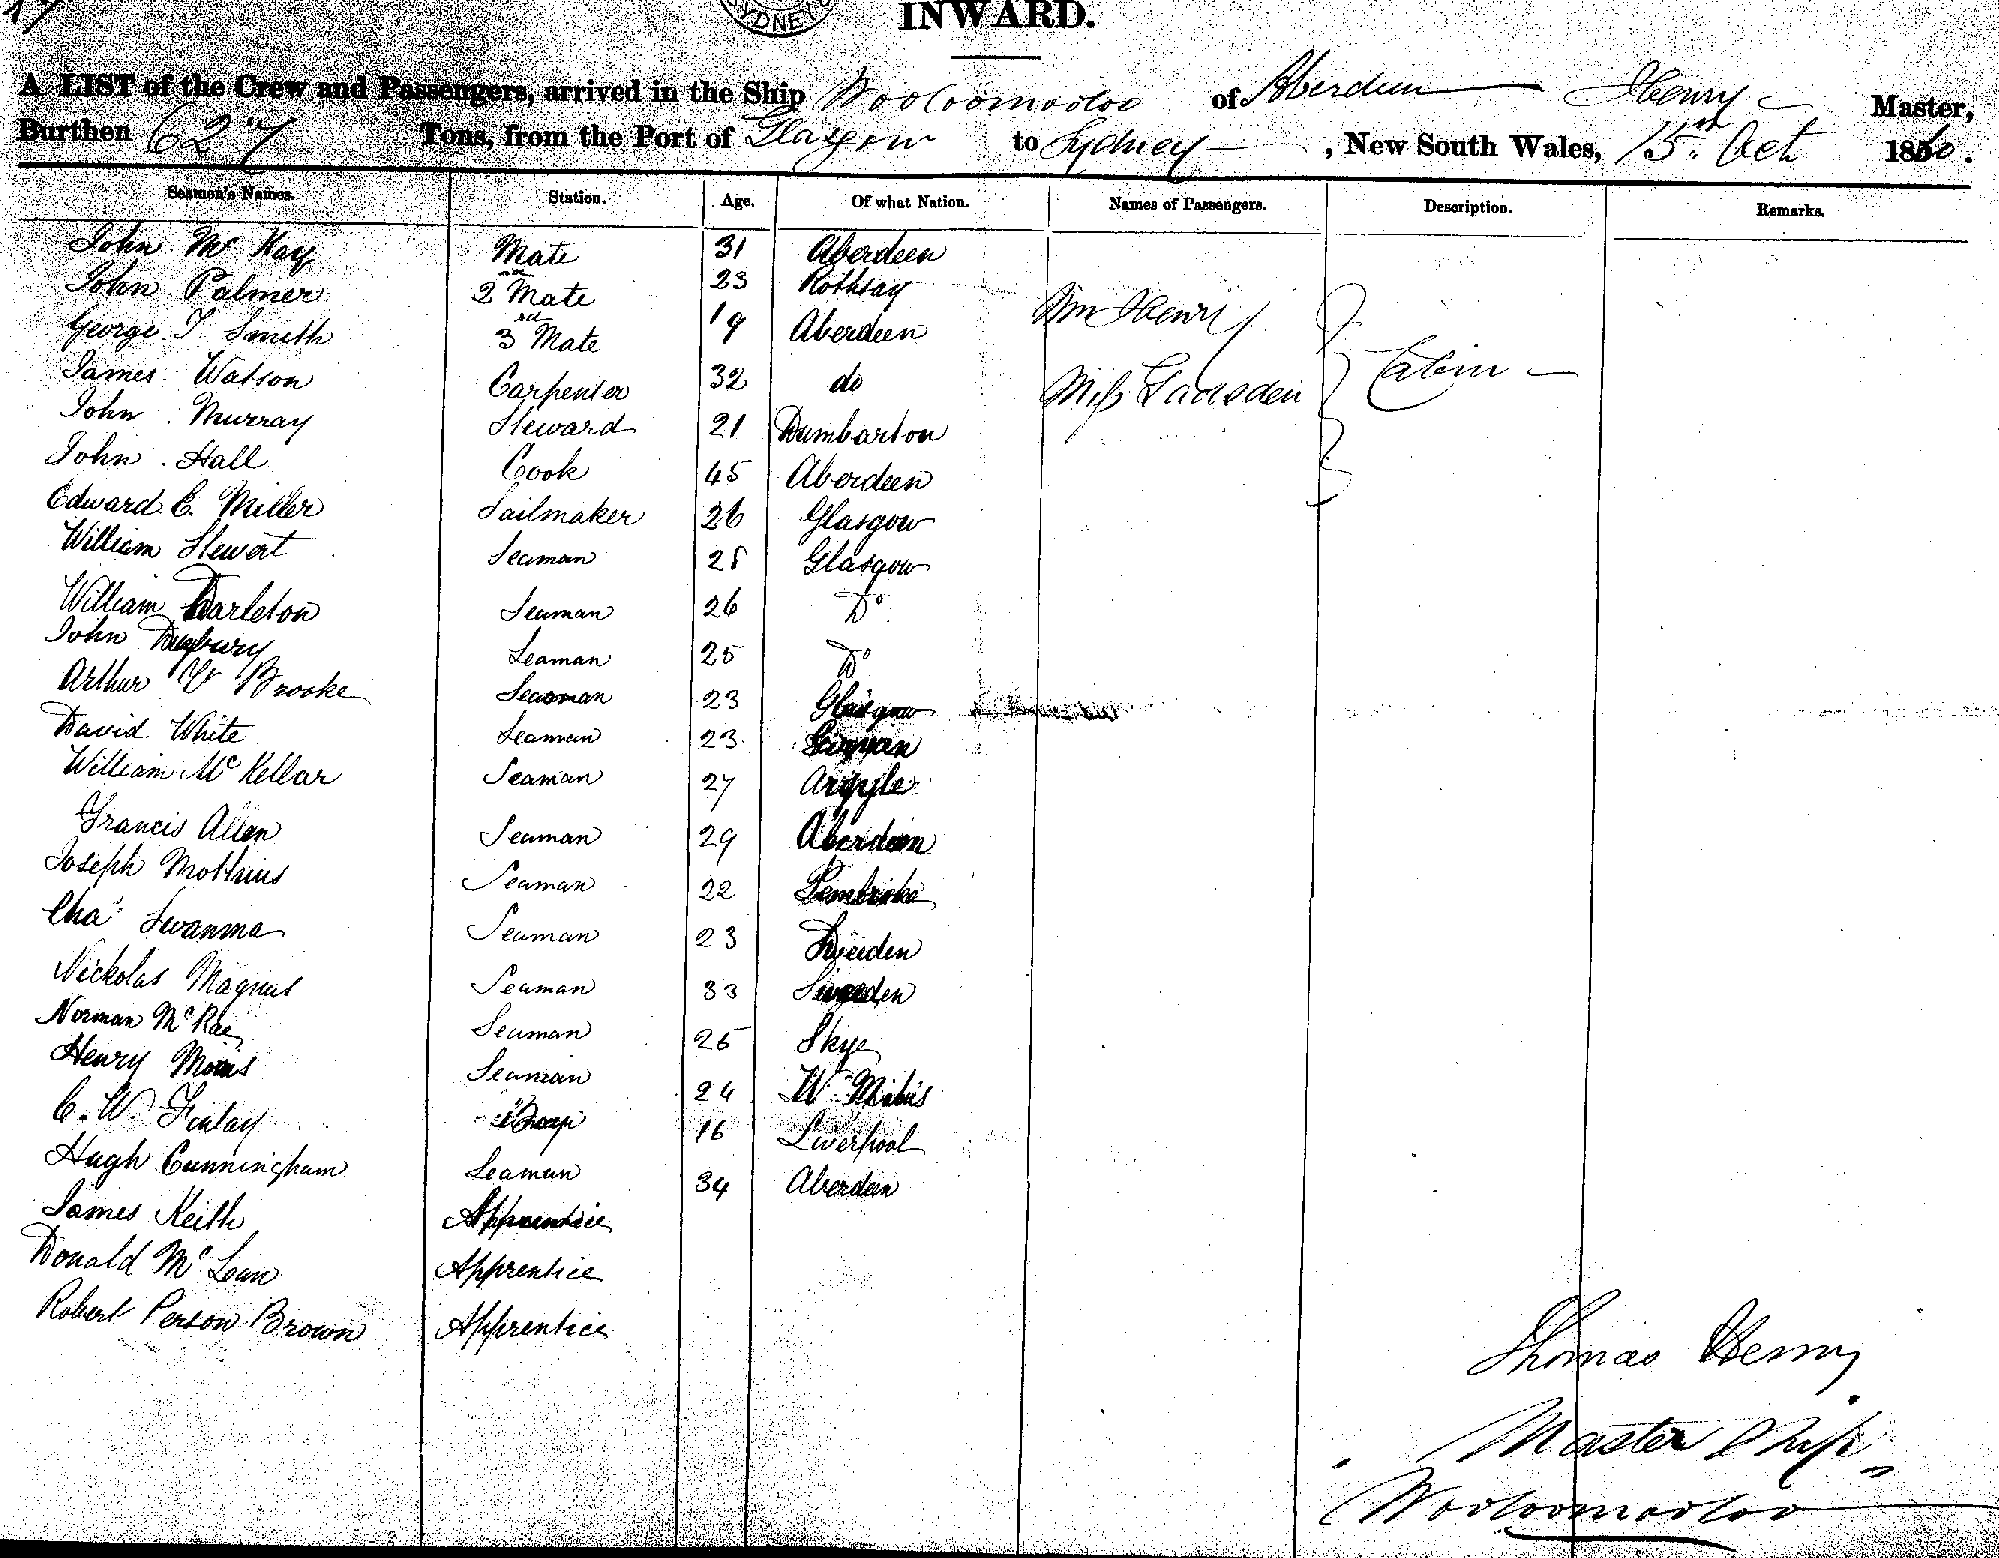 SYDNEY
INWARD.
A LIST of the Crew and Passengers, arrived in the Ship Wooloomooloo of Aberdeen Henry Master,
Burthen 627 Tons, from the Port of Glasgow to Sydney, New South Wales, 15th Oct 1860.
Seamen's Names. Station. Age. Of what Nation. Names of Passengers. Description. Remarks.
John McKay Mate 31 Aberdeen
John Palmer 2nd Mate 23 Rothsay Wm Henry
George T Smith 3rd Mate 19 Aberdeen
James Watson Carpenter 32 do Miss Cabin
John Murray Steward 21 Dumbarton
John Hall Cook 45 Aberdeen
Edward C. Miller Sailmaker 26 Glasgow
William Stewert Seaman 25 Glasgow
William Tarleton Seaman 26 Do
John Seaman 25 Do
Arthur V Brooke Seaman 23 Glasgow
David White Seaman 23
William McKellar Seaman 27 Argyle
Francis Allen Seaman 29 Aberdeen
Joseph Seaman 22 Pembroke
Chas Swanma Seaman 23 Sweden
Nickolas Magnus Seaman 33 Sweden
Norman McRae Seaman 25 Skye
Henry Seaman 24 W
C. W. Finlay Boy 16 Liverpool
Hugh Cunningham Seaman 34 Aberdeen
James Keith Apprentice
Donald McLean Apprentice
Robert Person Brown Apprentice
Thomas Henry
Master Ship
Wooloomooloo